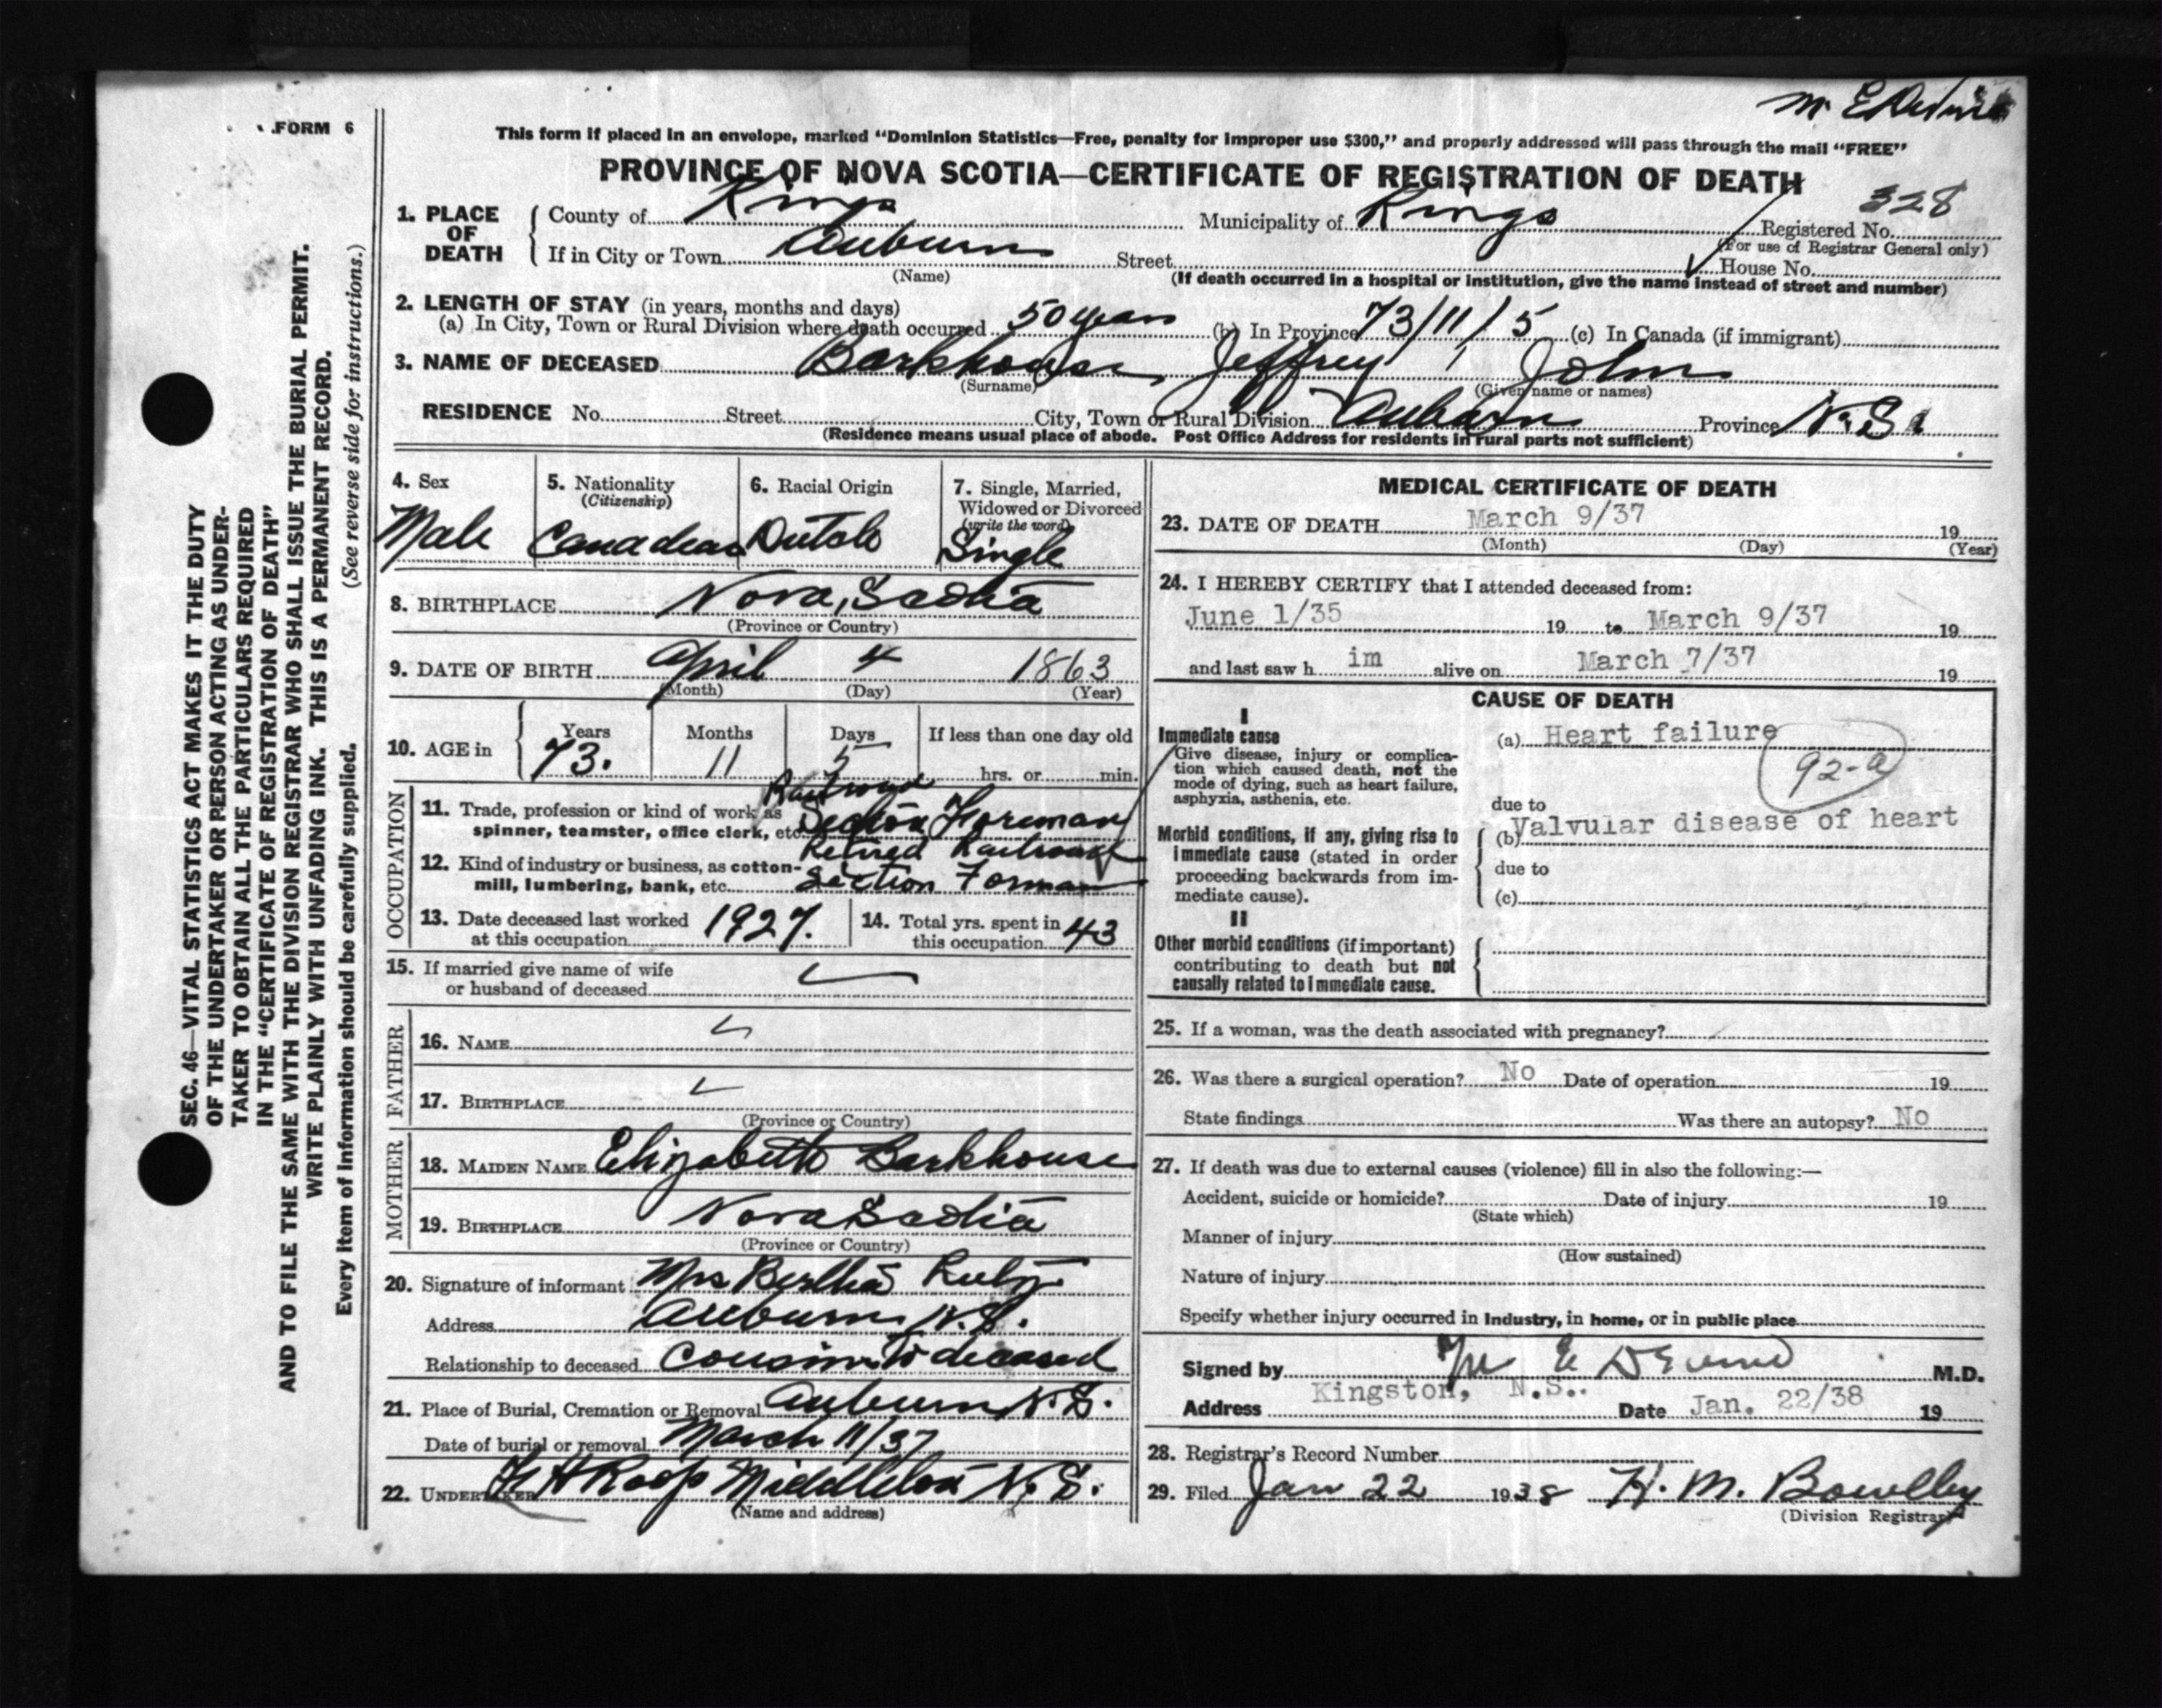 FORM 6
This form if placed in an envelope, marked “Dominion Statistics—Free, penalty for improper use $300,” and properly addressed will pass through the mail “FREE”
PROVINCE OF NOVA SCOTIA—CERTIFICATE OF REGISTRATION OF DEATH
1. PLACE OF DEATH
County of Kings Municipality of Kings Registered No. 328
(For use of Registrar General only)
If in City or Town Auburn Street House No.
(Name) (If death occurred in a hospital or institution, give the name instead of street and number)
2. LENGTH OF STAY (in years, months and days)
(a) In City, Town or Rural Division where death occurred 50 years (b) In Province 73/11/5 (c) In Canada (if immigrant)
3. NAME OF DECEASED Barkhouse Jeffrey John
(Surname) (Given name or names)
RESIDENCE No. Street City, Town or Rural Division Auburn Province N.S.
(Residence means usual place of abode. Post Office Address for residents in rural parts not sufficient)
4. Sex
Male
5. Nationality
(Citizenship)
Canadian
6. Racial Origin
Dutch
7. Single, Married,
Widowed or Divorced
(write the word)
Single
8. BIRTHPLACE Nova Scotia
(Province or Country)
9. DATE OF BIRTH April 4 1863
(Month) (Day) (Year)
10. AGE in
Years Months Days If less than one day old
73. 11 5 hrs. or min.
OCCUPATION
11. Trade, profession or kind of work as
spinner, teamster, office clerk, etc.
Railroad
Section Foreman
12. Kind of industry or business, as cotton-
mill, lumbering, bank, etc.
Retired Railroad
Section Forman
13. Date deceased last worked
at this occupation 1927.
14. Total yrs. spent in
this occupation 43
15. If married give name of wife
or husband of deceased
FATHER
16. NAME
17. BIRTHPLACE
(Province or Country)
MOTHER
18. MAIDEN NAME Elizabeth Barkhouse
19. BIRTHPLACE Nova Scotia
(Province or Country)
20. Signature of informant Mrs Bertha
Address Auburn N.S.
Relationship to deceased Cousin to deceased
21. Place of Burial, Cremation or Removal Auburn N.S.
Date of burial or removal March 11/37
22. UNDERTAKER H Roop Middleton N.S.
(Name and address)
MEDICAL CERTIFICATE OF DEATH
23. DATE OF DEATH March 9/37 19
(Month) (Day) (Year)
24. I HEREBY CERTIFY that I attended deceased from:
June 1/35 19 to March 9/37 19
and last saw h im alive on March 7/37 19
CAUSE OF DEATH
I
Immediate cause
Give disease, injury or complica-
tion which caused death, not the
mode of dying, such as heart failure,
asphyxia, asthenia, etc.
(a) Heart failure
92-a
due to
Morbid conditions, if any, giving rise to
immediate cause (stated in order
proceeding backwards from im-
mediate cause).
(b) Valvular disease of heart
due to
(c)
II
Other morbid conditions (if important)
contributing to death but not
causally related to immediate cause.
25. If a woman, was the death associated with pregnancy?
26. Was there a surgical operation? No Date of operation 19
State findings Was there an autopsy? No
27. If death was due to external causes (violence) fill in also the following:—
Accident, suicide or homicide? Date of injury 19
(State which)
Manner of injury
(How sustained)
Nature of injury
Specify whether injury occurred in industry, in home, or in public place
Signed by M E M.D.
Address Kingston, N.S.. Date Jan. 22/38 19
28. Registrar's Record Number
29. Filed Jan 22 1938 H. M. Bowlby
(Division Registrar)
SEC. 46—VITAL STATISTICS ACT MAKES IT THE DUTY
OF THE UNDERTAKER OR PERSON ACTING AS UNDER-
TAKER TO OBTAIN ALL THE PARTICULARS REQUIRED
IN THE “CERTIFICATE OF REGISTRATION OF DEATH”
AND TO FILE THE SAME WITH THE DIVISION REGISTRAR WHO SHALL ISSUE THE BURIAL PERMIT.
WRITE PLAINLY WITH UNFADING INK. THIS IS A PERMANENT RECORD.
Every item of information should be carefully supplied. (See reverse side for instructions.)